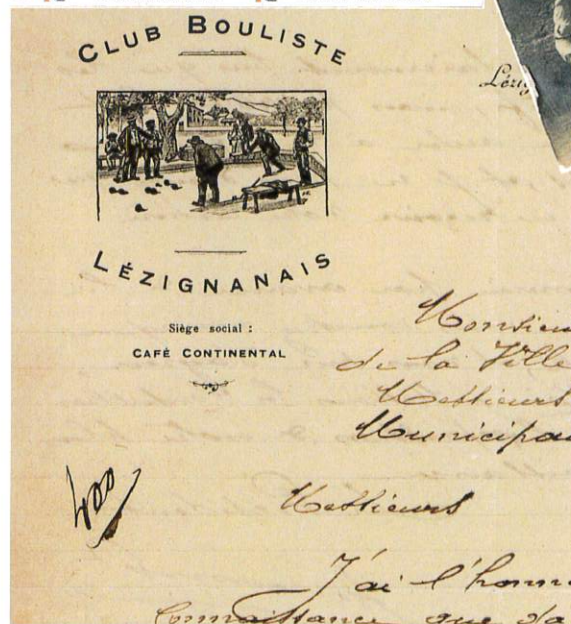 CLUB BOULISTE
LÉZIGNANAIS
Siège social :
CAFÉ CONTINENTAL
Lézig
Monsieu
de la Ville
Messieurs
Municipau
400
Messieurs
J'ai l'honn
Connaissance que da